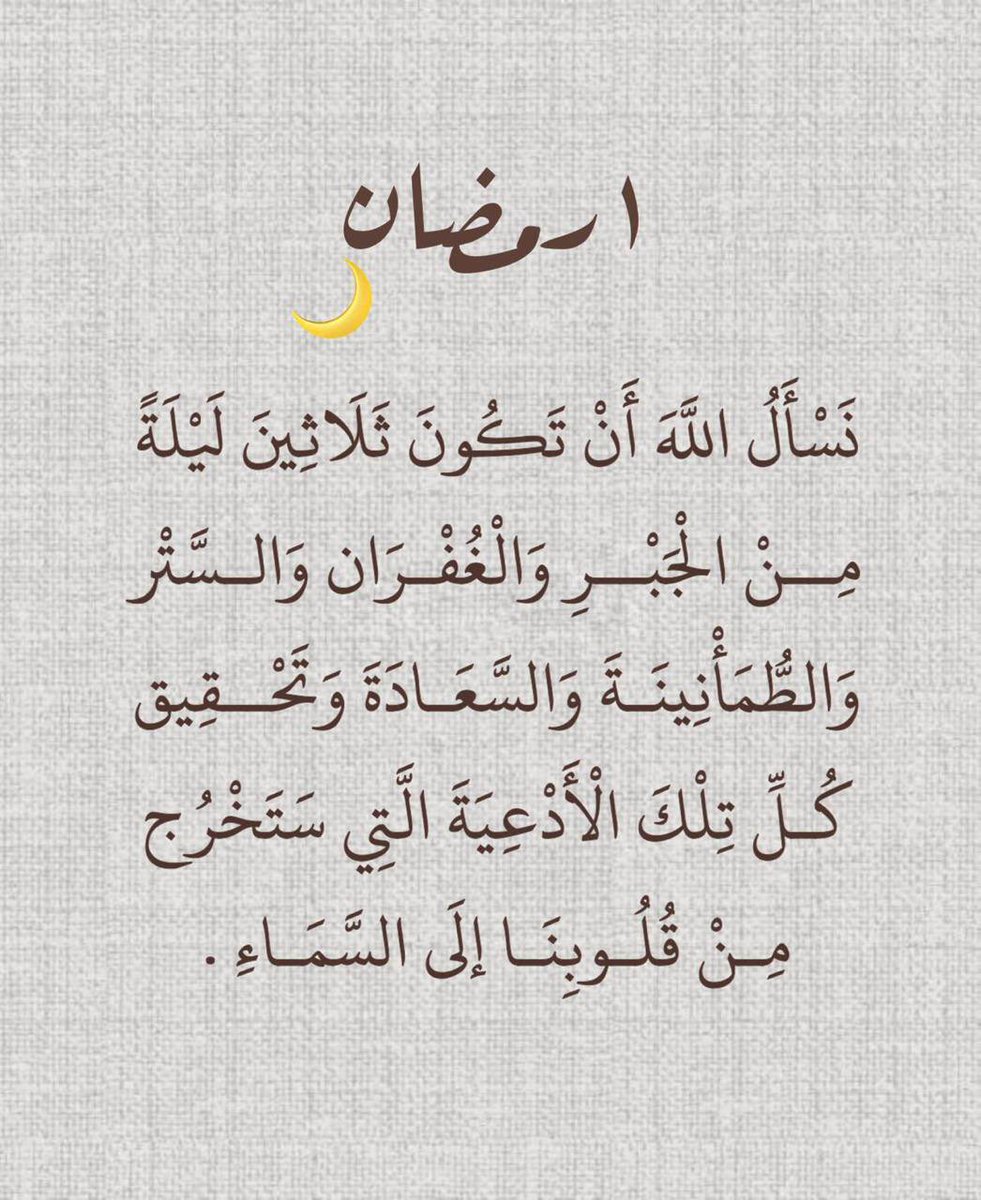 ١ رمضان
نَسْأَلُ اللَّهَ أَنْ تَكُونَ ثَلَاثِينَ لَيْلَةً
مِـــنْ الْجَبْـــرِ وَالْغُفْـرَان وَالـسَّتْر
وَالطُّمَأْنِينَـةَ وَالسَّعَـادَةَ وَتَحْـــقِيق
كُــلِّ تِلْكَ الْأَدْعِيَةَ الَّتِي سَتَخْرُج
مِـنْ قُلُـوبِنَـا إلَى السَّمَـاءِ .